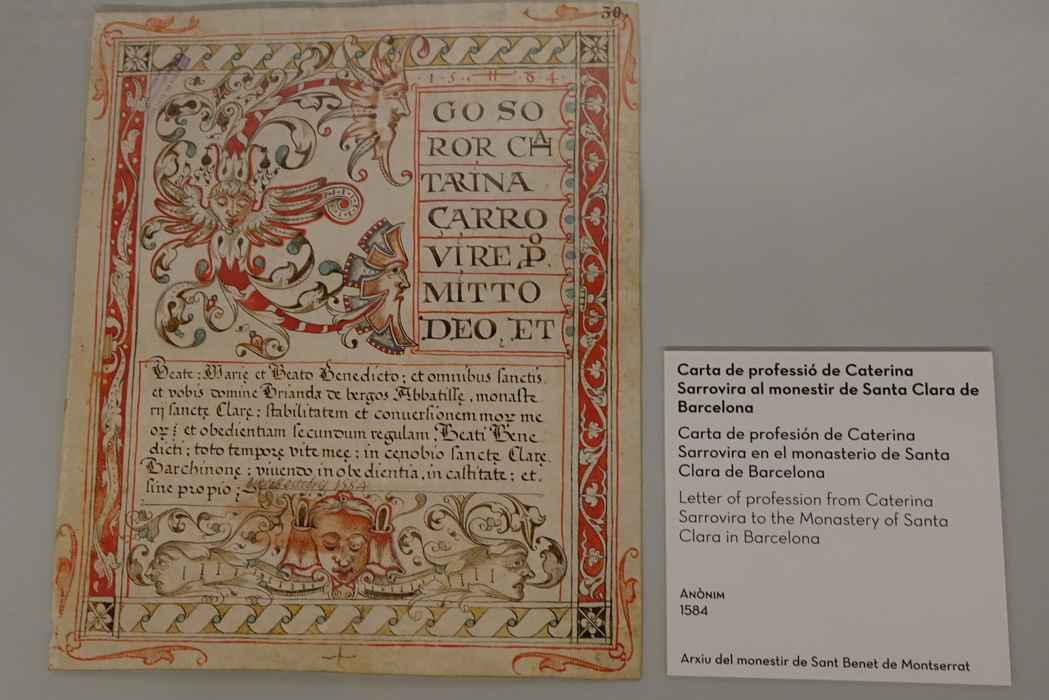 30.
15 84.
GO SO
ROR CHA
TARINA
ÇARRO
VIRE P̊.
MITTO
DEO, ET
Beate; Marię et Beato Benedicto; et omnibus sanctis.
et vobis domine Brianda de bergos Abbatisse, monaste
rij sanctę Clarę: stabilitatem et conuersionem mor me
or; et obedientiam secundum regulam; Beati Bene
dicti; toto tempore vite meę; in cenobio sanctę Clarę.
Barchinone; viuendo in obedientia, in castitate; et.
sine proprio;
octobris 1584
Carta de professió de Caterina
Sarrovira al monestir de Santa Clara de
Barcelona
Carta de profesión de Caterina
Sarrovira en el monasterio de Santa
Clara de Barcelona
Letter of profession from Caterina
Sarrovira to the Monastery of Santa
Clara in Barcelona
Anònim
1584
Arxiu del monestir de Sant Benet de Montserrat